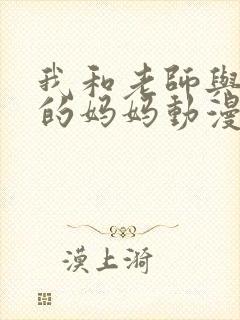 我和老師與
的妈妈動漫
漠上漪